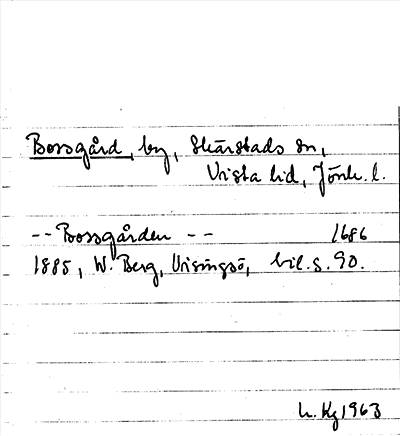 Bossgård, by, Skärstads sn,
Vista hd, Jönk. l.
-- Bossgården -- 1686
1885, W. Berg, Visingsö, bil. s. 90.
h. Kg 1963